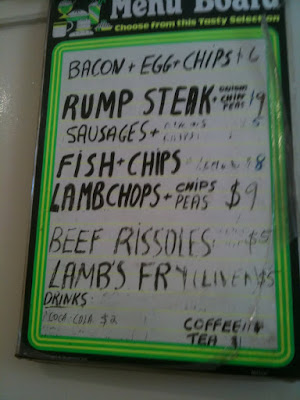 Menu Board
Choose from this Tasty Selection
BACON + EGG + CHIPS 6
RUMP STEAK + CHIPS PEAS 19
SAUSAGES + 5
FISH + CHIPS $8
LAMBCHOPS + CHIPS PEAS $9
BEEF RISSOLES $5
LAMB'S FRY (LIVER $5
DRINKS
COCA-COLA $2
COFFEE
TEA